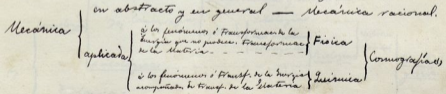 en abstracto y en general — Mecánica racional.
Mecánica
aplicada
á los fenómenos ó Transformac. de la
Energía que no producen Transformac.
de la Materia
Física
á los fenómenos ó Transf. de la Energía
acompañados de Transf. de la Materia
Química
Cosmografía